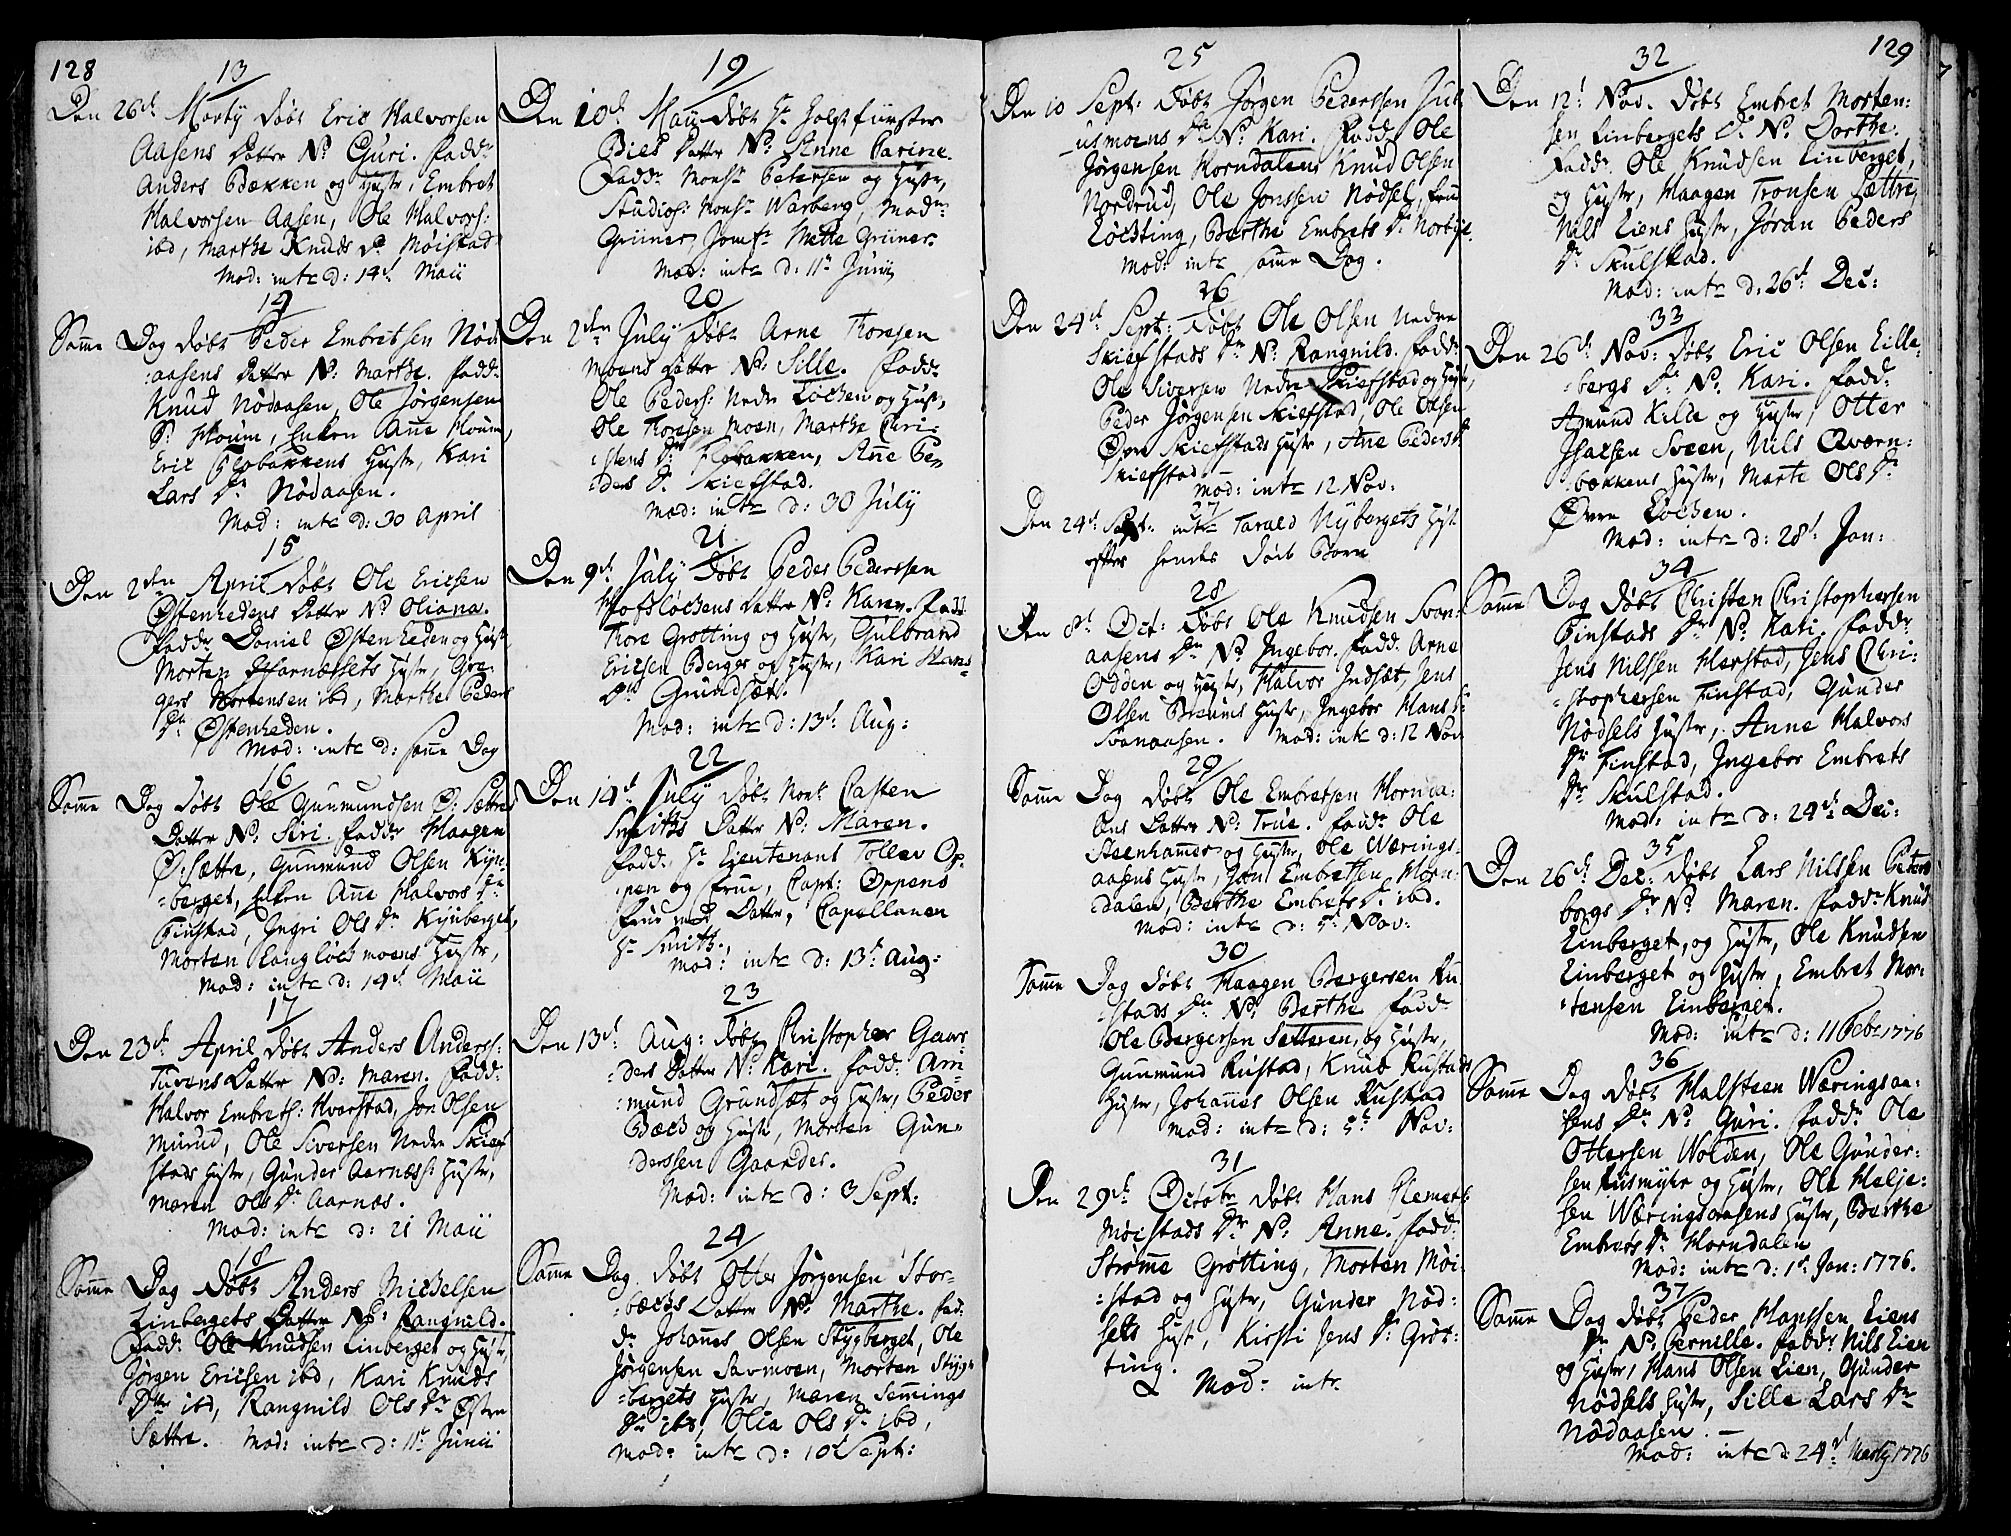 128
13
Den 26de Marty døbt Eric Halvorsen
Aasens Datter No Guri. fadd:
Anders Bækken og Hustr, Embret
Halvorsen Aasen, Ole Halvors:
ibd, Marthe Knuds Dr Moistad
Mod: intr d: 14de Maii
14
Samme Dag døbt Peder Embretsen Nød
:aasens Datter No: Marthe. fadd:
Knud Nødaasen, Ole Jørgensen
S: Houm, Enken Anne Houm,
Eric Flobækkens Hustr, Kari
Lars Dr Nødaasen.
Mod: intr d: 30 April
15
Den 2den April døbt Ole Ericsen
Østenhedens Datter No Oliana.
fadd: Daniel Østenheden og Hustr
Morten Aarnæssets Hustr, Gre-
gers Mortensen ibd, Marthe Peders
Dr Østenheden.
Mod: intr d: samme Dag
16
Samme Dag døbt Ole Gunmundsen Ø: Sættres
Datter No: Siri. fadd: Haagen
Ø: Sættre, Gunmund Olsen Kyn-
=berget, Enken Anne Halvors Dr
Finstad, Ingri Ols Dr Kynberget,
Morten Langløchmoens Hustr,
Mod: intr d: 14de Maii
17
Den 23de April døbt Anders Anderss:
Tuvens Datter No: Maren. fadd:
Halvor Embrets: Hverstad, Jon Olsen
Murud, Ole Siversen Nedre Skief
stads Hustr, Gunder Aarnæss: Hustr,
Maren Ols Dr Aarnæs.
Mod: intr d: 21 Maii
18
Samme Dag døbt Anders Michelsen
Linbergets Datter No: Rangnild.
fadd: Ole Knudsen Linberget og Hustr,
Jørgen Ericsen ibd, Kari Knuds
Dtr ibd, Rangnild Ols Dr Østre
Sættre. Mod: intr d: 11te Junii
19
Den 10de Maii døbt Hr Holstfurster
Bies Datter No: Anne Carine.
fadd: Monsr Petersen og Hustr,
Studios: Monsr Warberg, Mad:
Grüner, Jomfr Mette Grüner.
Mod: intr d: 11te Junii
20
Den 2den July døbt Arne Thoresen
Moens Datter No: Sille. fadd:
Ole Peders: Nedre Løchen og Hustr,
Ole Thoresen Moen, Marthe Chri-
:stens Dr Flobækken, Anne Pe-
:ders Dr Skiefstad.
Mod: intr d: 30 July
21
Den 9de July døbt Peder Pederssen
Hofsløchens Datter No: Karen. fadd:
Thore Grøtting og Hustr, Gulbrand
Ericsen Berger og Hustr, Kari Hans
Dr Grundsæt.
Mod: intr d: 13de Aug:
22
Den 14de July døbt Monsr Casten
Smiths Datter No: Maren.
fadd: Hr Lieutenant Tollev Op-
:pen og frue, Capt: Oppens
frue med Datter, Capellanen
Hr Smith.
Mod: intr d: 13te Aug:
23
Den 13de Aug: døbt Christopher Gaar-
:ders Datter No: Kari. fadd: Am-
:mund Grundsæt og Hustr, Peder
Bæck og Hustr, Morten Gun-
derssen Gaarder.
Mod: intr d: 3 Sept:
24
Samme Dag døbt Otter Jørgensen Stor-
:bæchs Datter No: Marthe. fad:
dr Johannes Olsen Stygberget, Ole
Jørgensen Savmoen, Morten Styg-
:bergets Hustr, Maren Semmings
Dr ibd, Olia Ols Dr ibd,
Mod: intr d: 10de Sept:
25
Den 10 Sept: døbt Jørgen Pederssen Jul-
usmoens Dr No: Kari. fadd: Ole
Jørgensen Horndalen, Knud Olsen
Nordrud, Ole Jonssen Nødsel, frue
Løcsting, Berthe Embrets Dr Norbye.
Mod: intr samme Dag.
26
Den 24de Sept: døbt Ole Olsen Nedre
Skiefstads Dr No: Rangnild. fadd:
Ole Siversen Nedre Skiefstad og Hustr,
Peder Jørgensen Skiefstad, Ole Olsen
Øvre Skiefstads Hustr, Ane Peders Dr
Skiefstad.
Mod: intr 12 Nov:
27
Den 24de Sept: intr Tarald Nyborgets Hust:
efter hendes død Børn
28
Den 8de Oct: døbt Ole Knudsen Svan-
aasens Dr No Ingebor. fadd: Arne
Odden og Hustr, Halvor Indsæt, Jens
Olsen Brenns Hustr, Ingebor Hans Dr
Svanaasen. Mod: intr d: 12 Nov
29
Samme Dag døbt Ole Embretsen Hornda:
lens Datter No: True. fadd: Ole
Steenhammer og Hustr, Ole Wærings-
aasens Hustr, Jon Embretsen Horn-
dalen, Berthe Embrets Dr ibd.
Mod: intr d: 5te Nov:
30
Samme Dag døbt Haagen Bergersen Ru
:stads Dr No: Berthe fadd:
Ole Bergersen Sætteren, og Hustr,
Gunmund Rustad, Knud Rustads
Hustr, Johannes Olsen Rustad
Mod: intr d: 5te Nov:
31
Den 29de Octobr døbt Hans Klemets:
Moistads Dr No: Anne. fadd:
Strømme Grøtting, Morten Moi-
:stad og Hustr, Gunder Nød-
sels Hustr, Kirsti Jens Dr Grøt:
ting.
Mod: intr.
129
32
Den 12te Nov. døbt Embret Morten:
sen Linbergets Dr No: Dorthe.
fadd: Ole Knudsen Linberget,
og Hustr, Haagen Tronsen Sættre,
Nils Liens Hustr, Jøran Peders
Dr Skulstad.
Mod: intr d: 26de Dec:
33
Den 26de Nov: døbt Eric Olsen Lille-
:bergs Dr No: Kari. fadd:
Amund Kilde og Hustr, Otter
Isacsen Sveen, Nils Qværn:
:bækkens Hustr, Marte Ols Dr
Øvre Løchen.
Mod: intr d: 28de Jan:
34
Samme Dag døbt Christen Christophersen
Finstads Dr No: Kari. fadd:
Jens Nilssen Harstad, Jens Chri:
:stophersen Finstad, Gunder
Nødsels Hustr, Anne Halvors
Dr Finstad, Ingebor Embrets
Dr Skulstad.
Mod: intr d: 24de Dec:
35
Den 26de Dec: døbt Lars Nilsen Peters
borgs Dr No: Maren. fadd: Knud
Linberget, og Hustr, Ole Knudsen
Linberget og Hustr, Embret Mor:
:tensen Linberget.
Mod: intr d: 11 Febr 1776
36
Samme Dag døbt Halsteen Wæringsaa-
sens Dr No: Guri. fadd: Ole
Ottersen Wolden, Ole Gunder:
sen Kusmyhr og Hustr, Ole Helje:
sen Wæringsaasens Hustr, Berthe
Embrets Dr Horndalen
Mod: intr d: 1te Jan: 1776.
37
Samme Dag døbt Peder Hanssen Liens
Dr No: Pernille. fadd: Nils Lien
og Hustr, Hans Olsen Lien, Gunder
Nødsels Hustr, Sille Lars Dr
Nødaasen. —
Mod: intr d: 24de Marty 1776